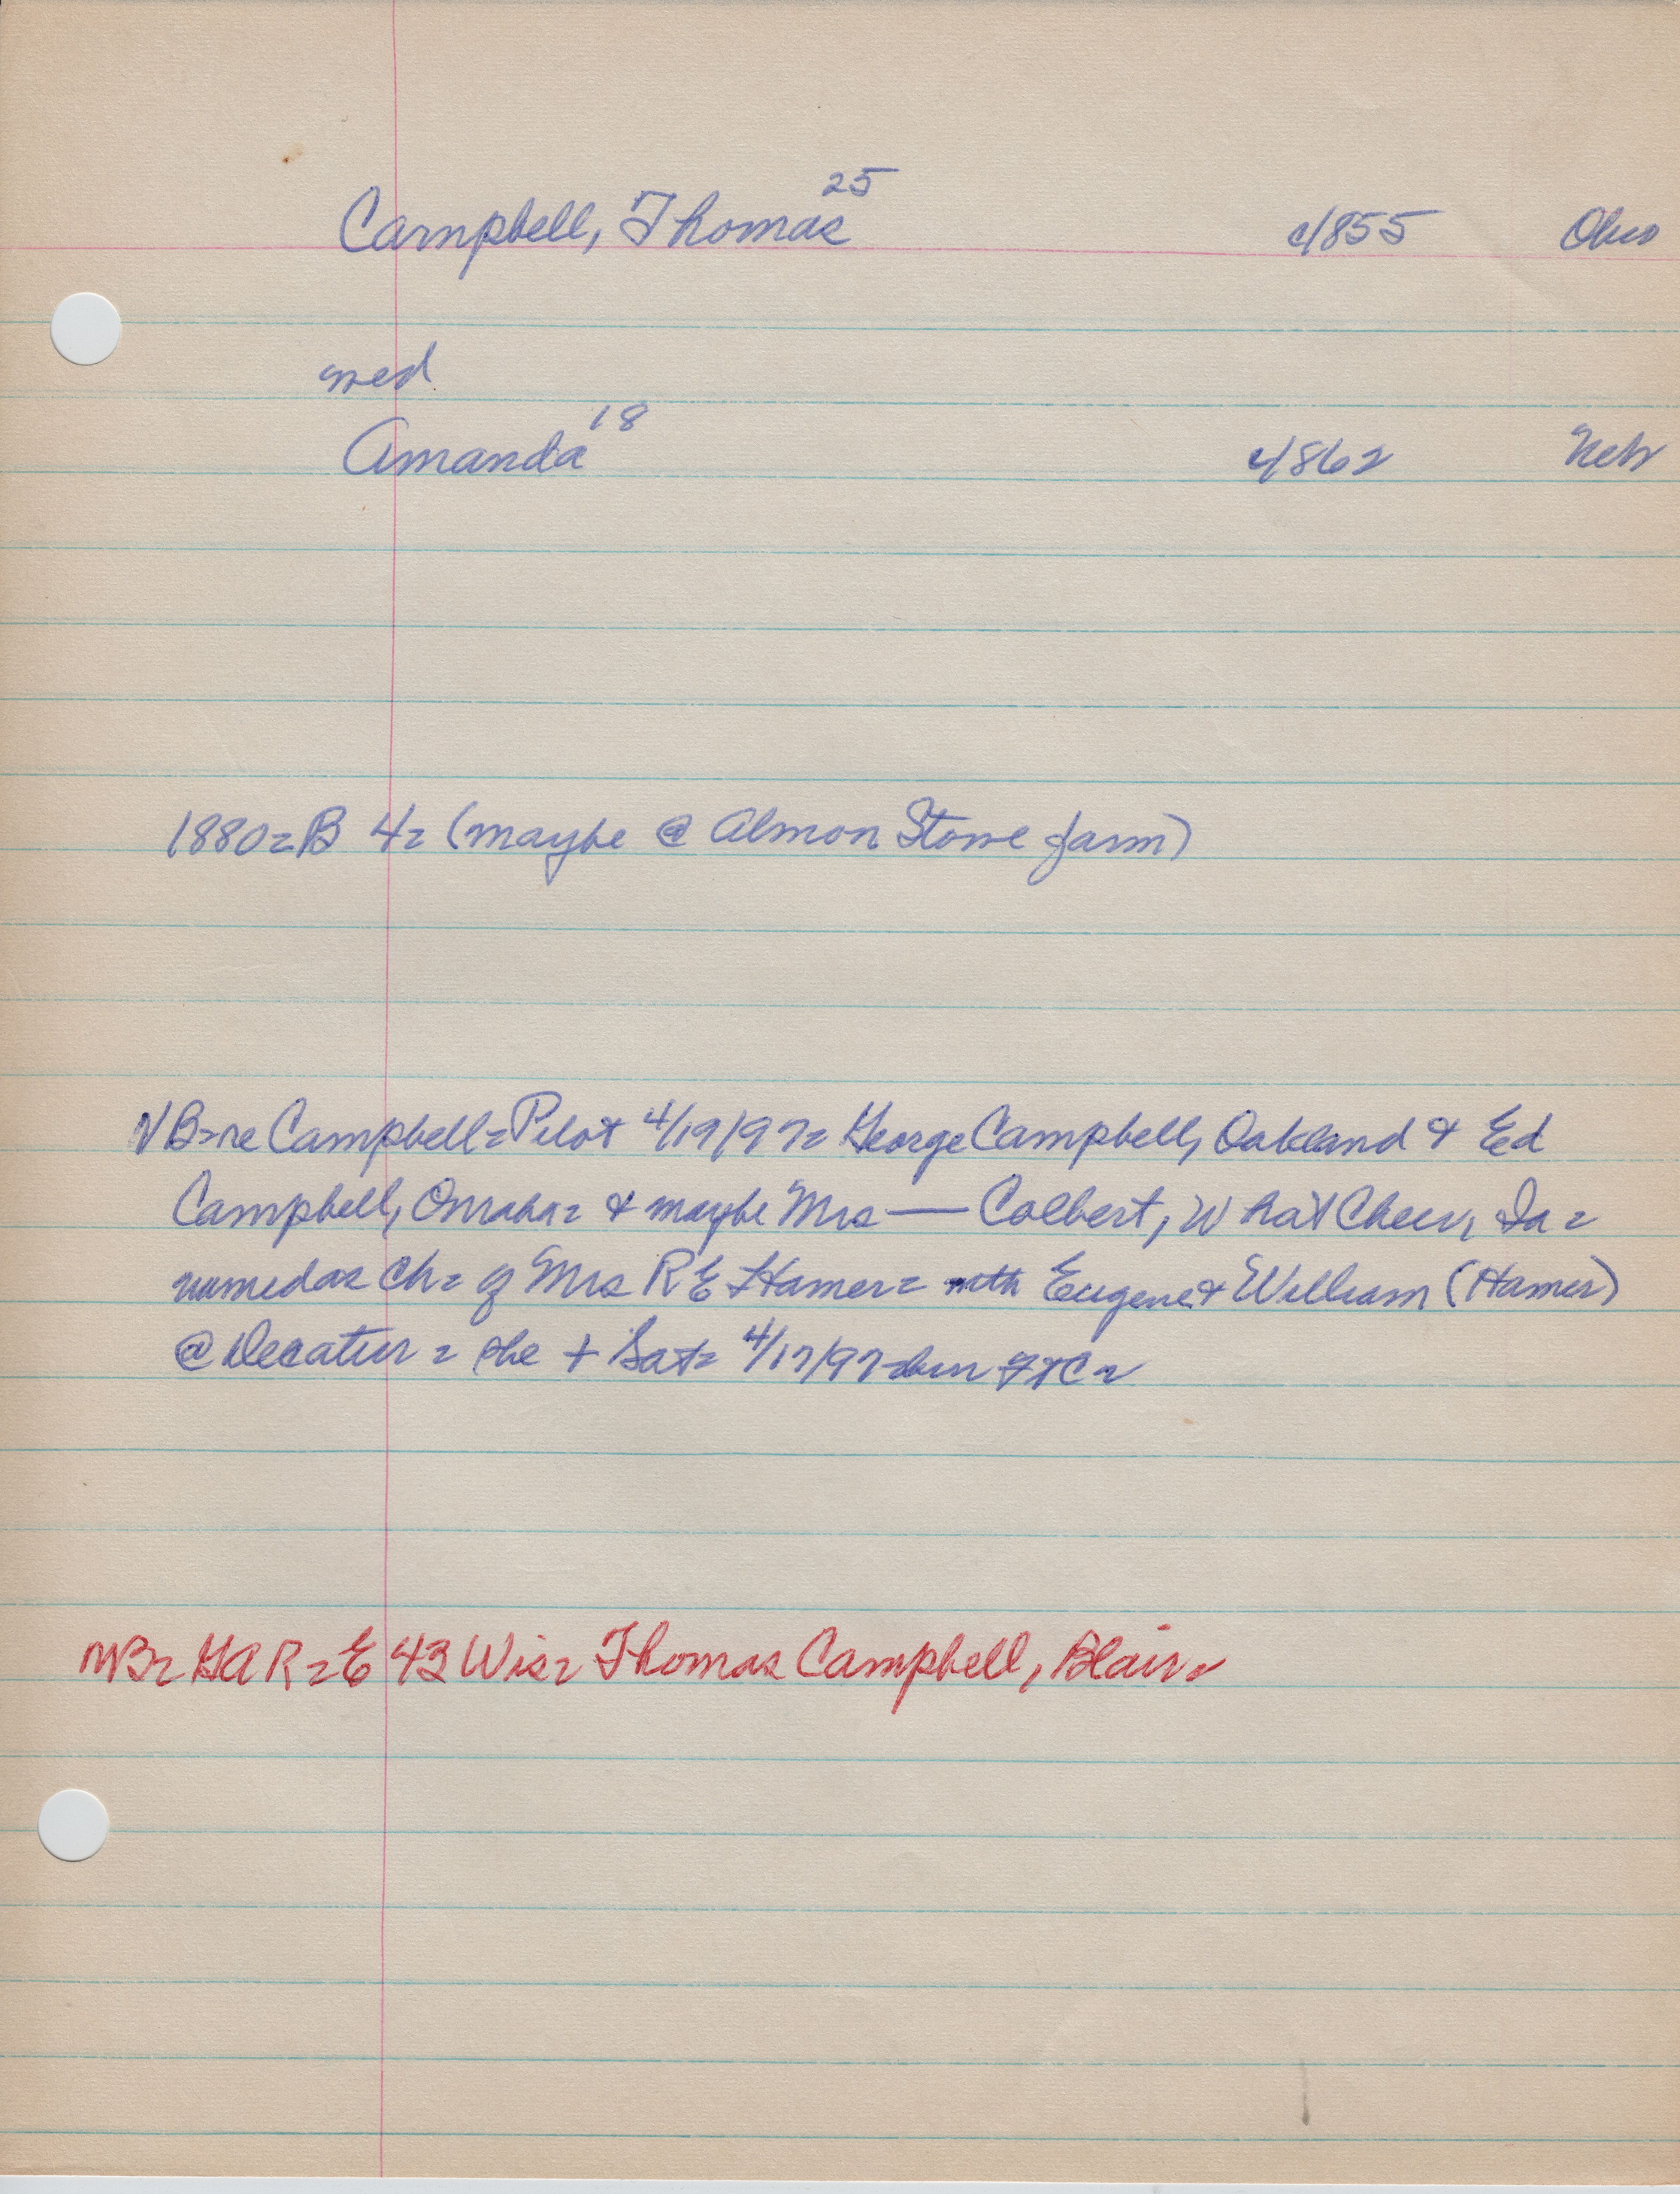 Campbell, Thomas 25 c1855 Ohio
med
Amanda 18 c1862 Nebr
1880= B 4= (maybe @ Almon Stowe farm)
NB=re Campbell= Pilot 4/19/97= George Campbell, Oakland & Ed
Campbell, Omaha= & maybe Mrs — Colbert, What Cheer, Ia=
named as ch= of Mrs R E Hamer= with Eugene & William (Hamer)
@ Decatur= she + Sat= 4/17/97=
NB= GAR= E 43 Wis= Thomas Campbell, Blair=